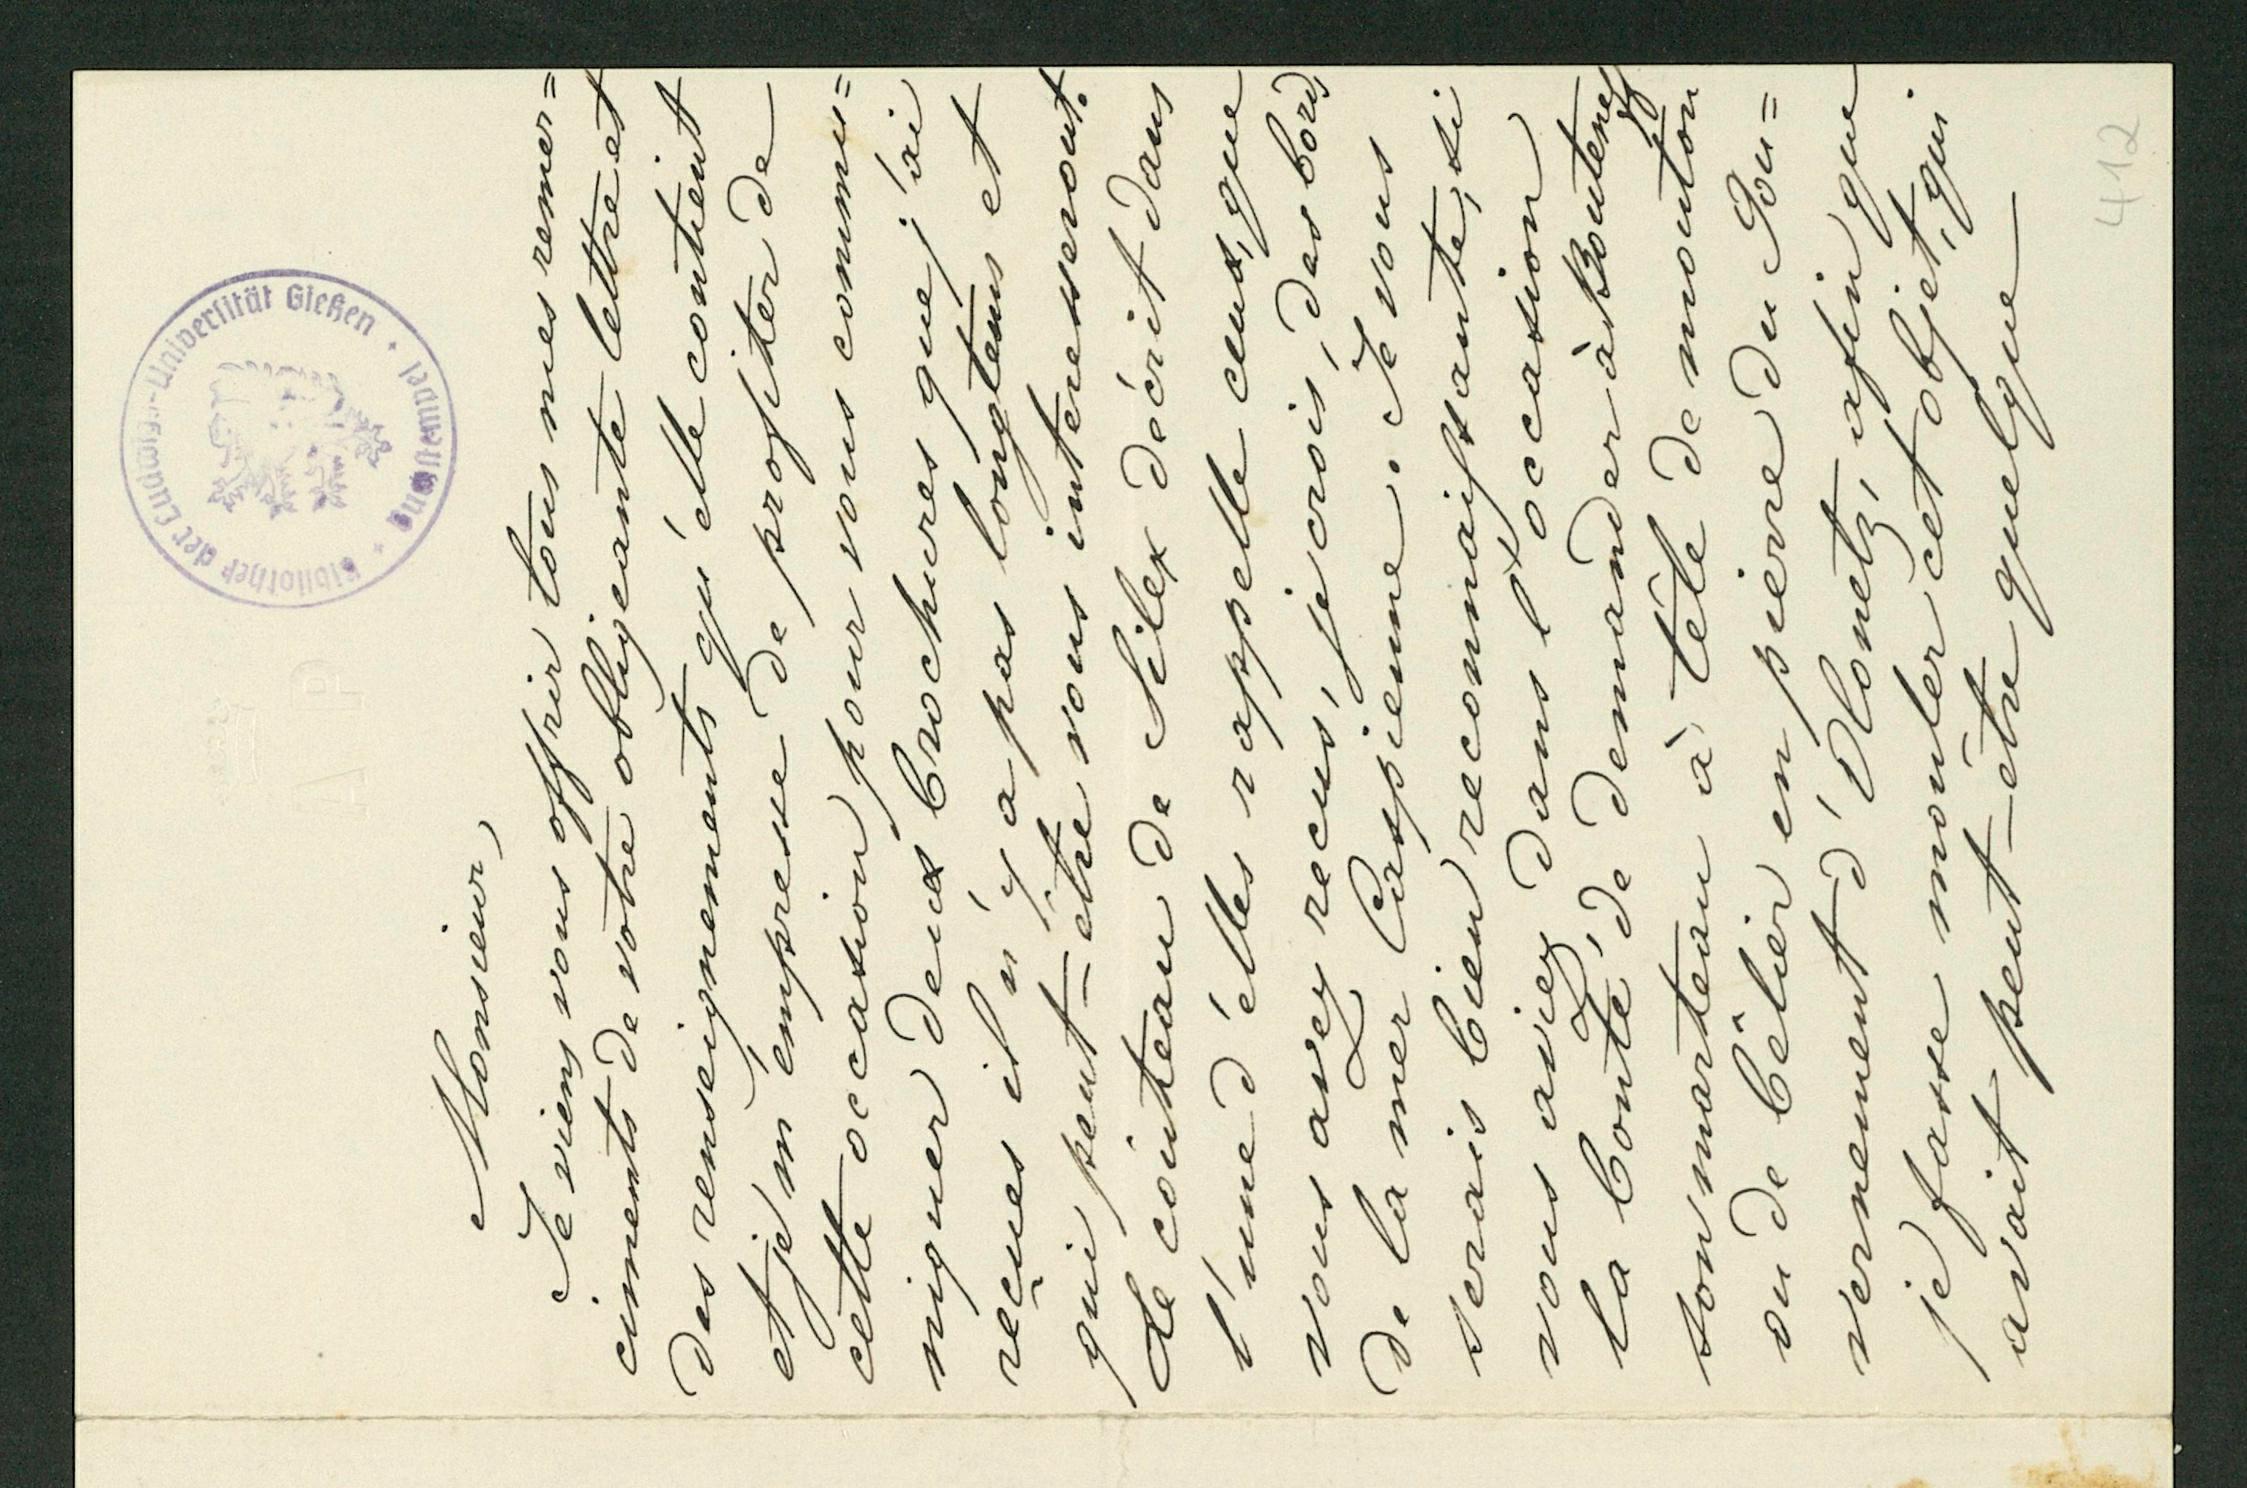 Bibliothek der Ludwigs-Universität Gießen
Handstempel
A P
Monsieur,
Je viens vous offrir tous mes remer=
ciments de votre obligeante lettre et
des renseignements qu'elle contient
et je m'empresse de profiter de
cette occasion pour vous commu=
niquer deux brochures que j'ai
reçues il n'y a pas longtems et
qui peut-être vous interesseront.
Le couteau de silex décrit dans
l'une d'elles rappelle ceux, que
vous avez recus, je crois, des bords
de la mer Caspienne. Je vous
serais bien reconnaissante, si
vous aviez dans l'occasion
la bonté de demander à Boutenef
son marteau à tête de mouton
ou de bêlier en pierre du Gou=
vernement d'Olonetz, afin que
je fasse mouler cet objet, qui
avait peut-être quelque
412